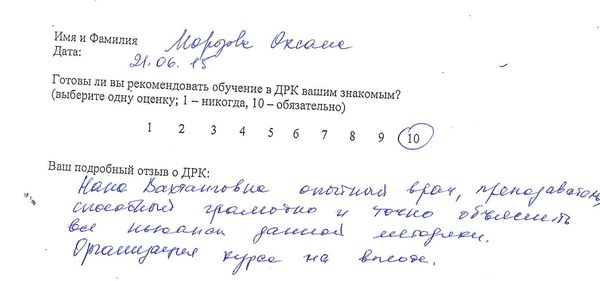 Имя и Фамилия Морозова Оксана
Дата: 21.06.15
Готовы ли вы рекомендовать обучение в ДРК вашим знакомым?
(выберите одну оценку; 1 – никогда, 10 – обязательно)
1 2 3 4 5 6 7 8 9 10
Ваш подробный отзыв о ДРК:
Нана Вахтанговна опытный врач, преподаватель,
способный грамотно и точно объяснить
все нюансы данной методики.
Организация курса на высоте.